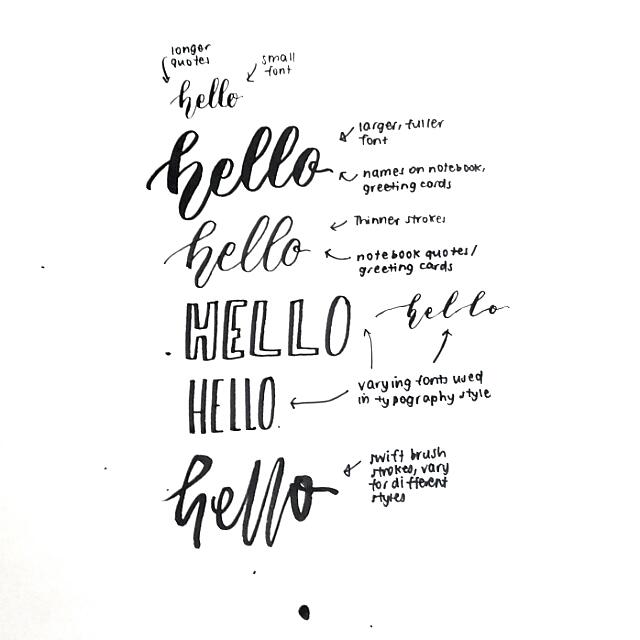 longer
quotes
small
font
hello
larger, fuller
font
hello
names on notebook,
greeting cards
Thinner strokes
hello
notebook quotes/
greeting cards
HELLO
hello
varying fonts used
in typography style
HELLO
swift brush
strokes, vary
for different
styles
hello